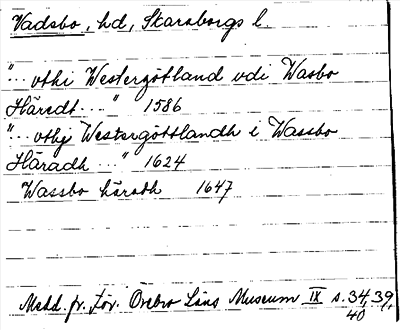 Vadsbo, hd, Skaraborgs l.
"... vthi Westergöttland vdi Wasbo
Häredt..." 1586
"... vthj Westergöttlandh i Wassbo
Häradh ..." 1624
Wassbo häradh 1647
Medd. fr. För. Örebro Läns Museum IX s. 34, 39,
40